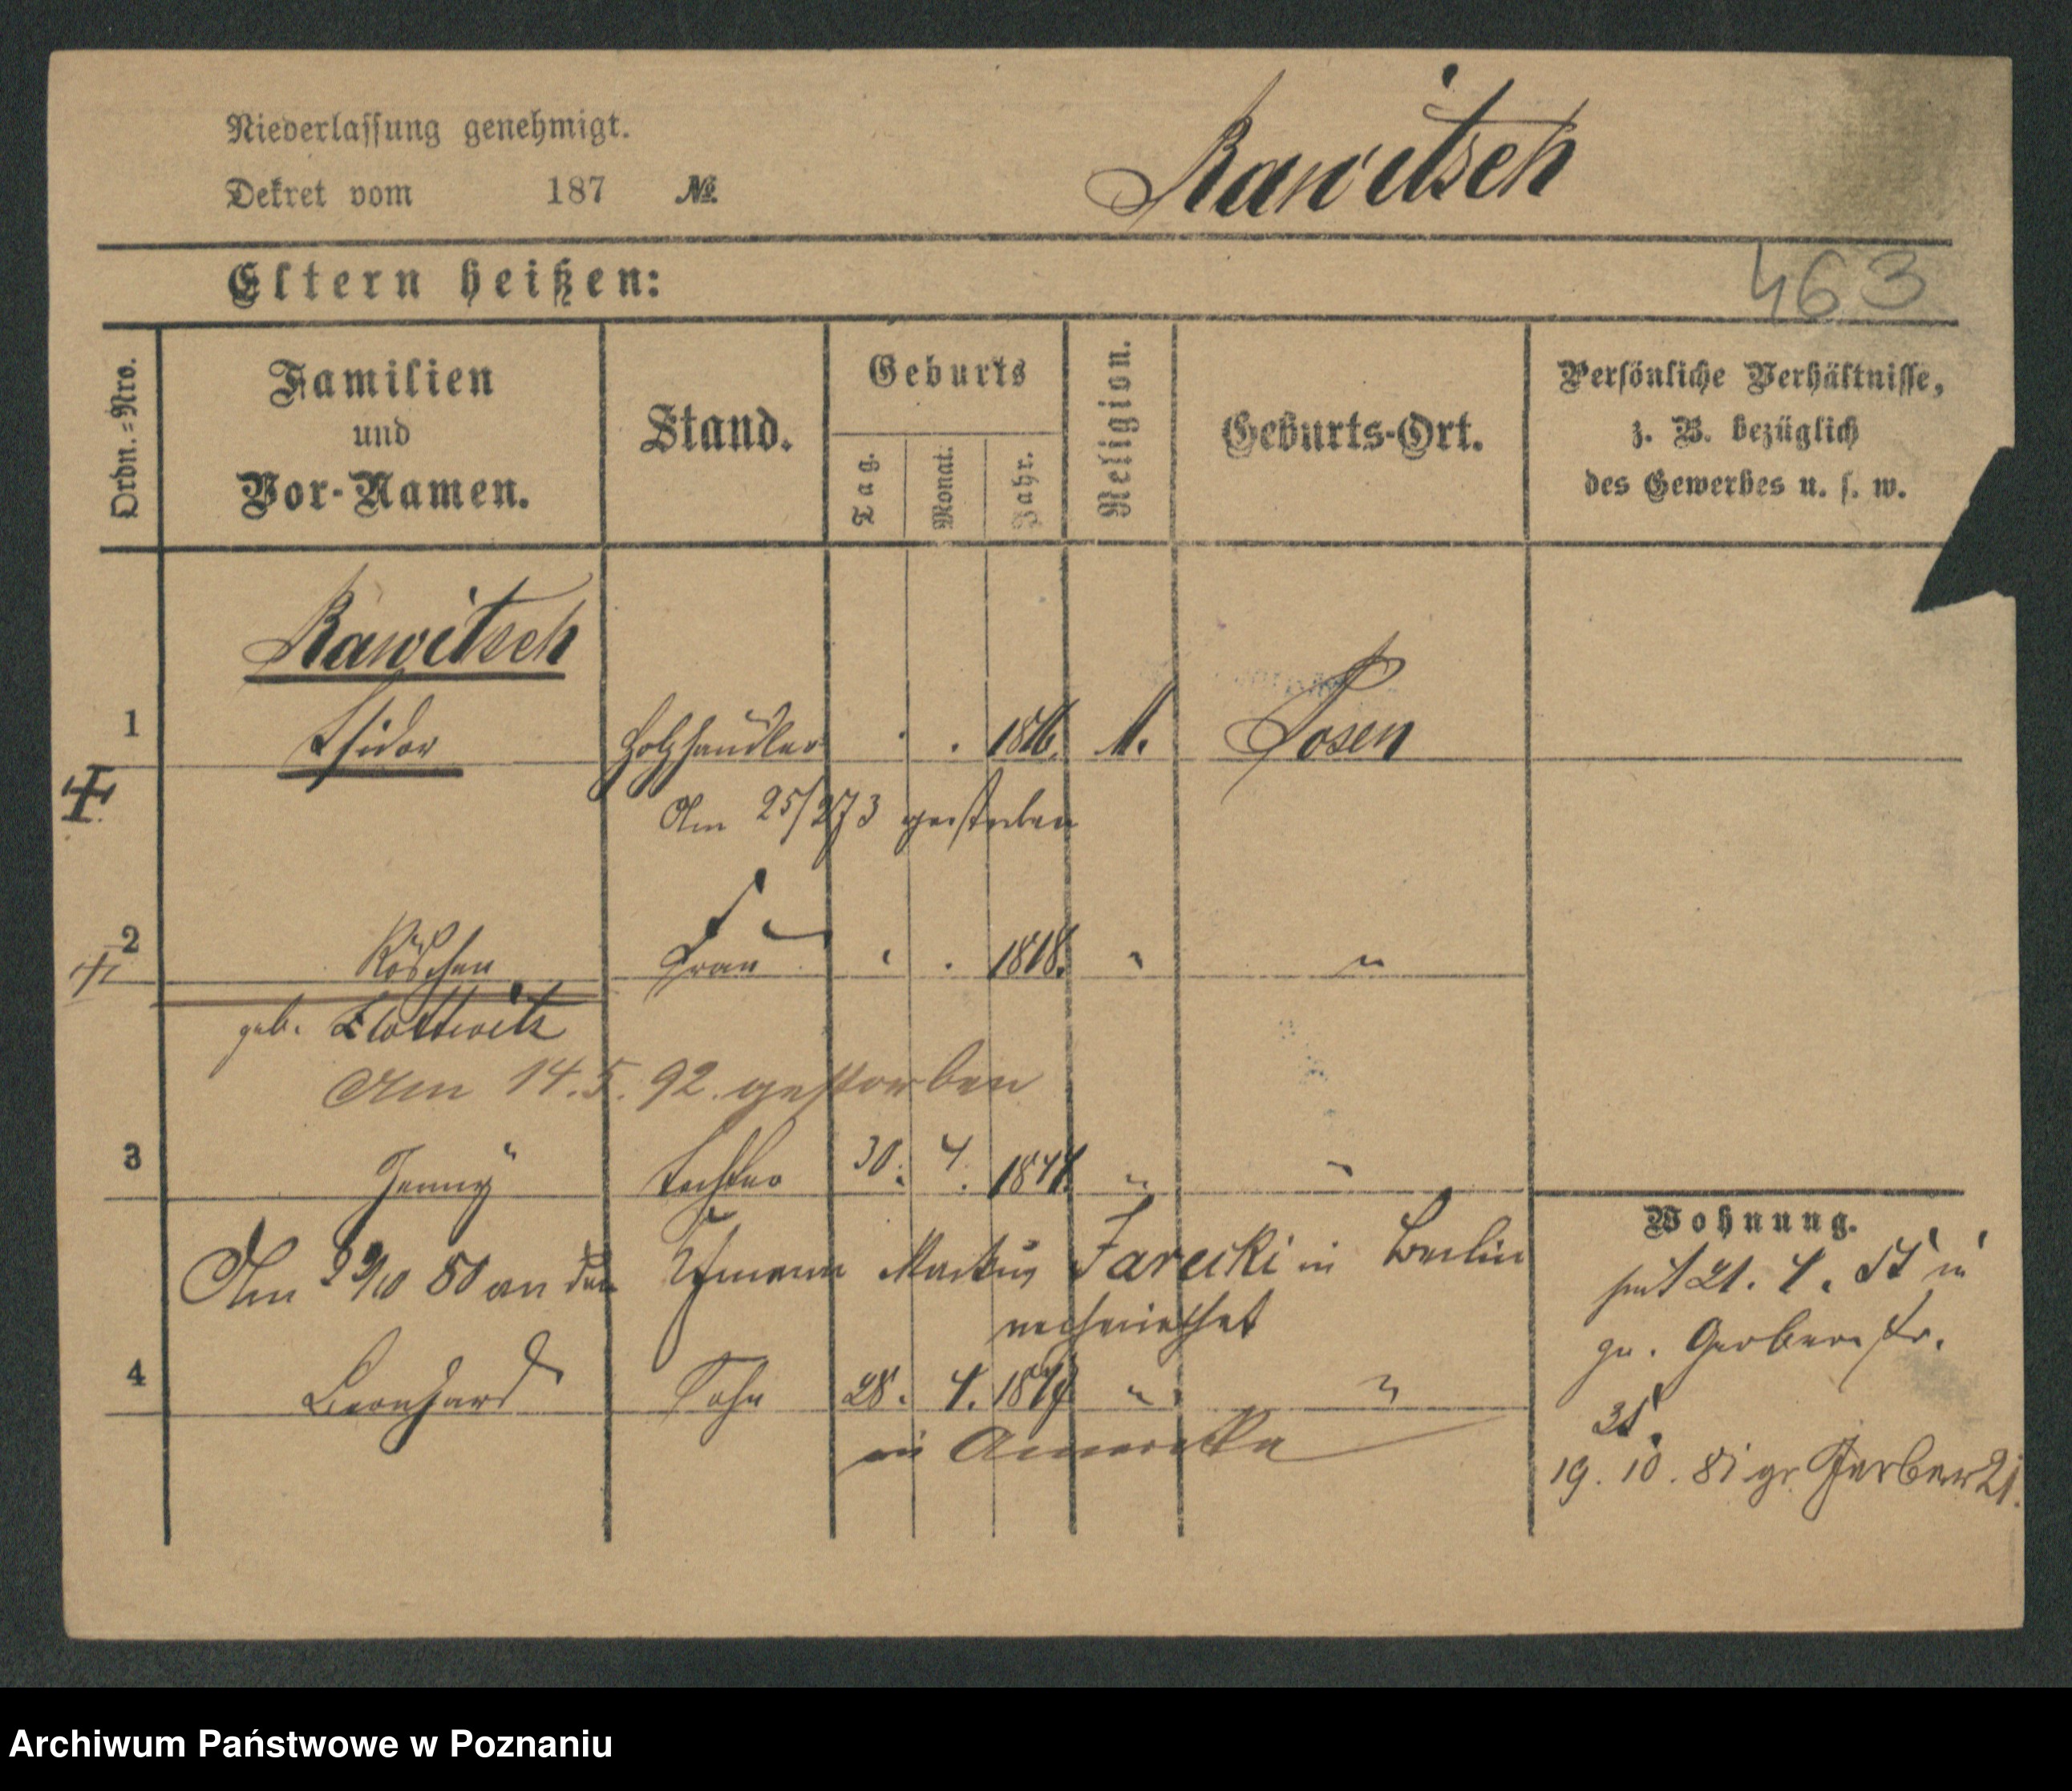 Niederlassung genehmigt.
Dekret vom 187 №
Rawitsch
Eltern heißen:
463
Ordn.=Nro.
Familien
und
Vor-Namen.
Stand.
Geburts
Tag.
Monat.
Jahr.
Religion.
Geburts-Ort.
Persönliche Verhältnisse,
z. B. bezüglich
des Gewerbes u. s. w.
Rawitsch
1 Isidor Holzhändler 1816. Posen
Am 25/2 73 gestorben
2 Röschen Frau 1818. " "
geb. Flattwitz
Am 14.5.92. gestorben
3 Jenny Tochter 30. 4. " "
Wohnung.
Am 80 an den Markus Jarecki in Berlin
verheirathet
seit 21. 4. in
gr. Gerberstr.
4 Leonhard Sohn 28. 4. " "
in Amerika
19. 10. 81 gr. Gerber 21.
Archiwum Państwowe w Poznaniu